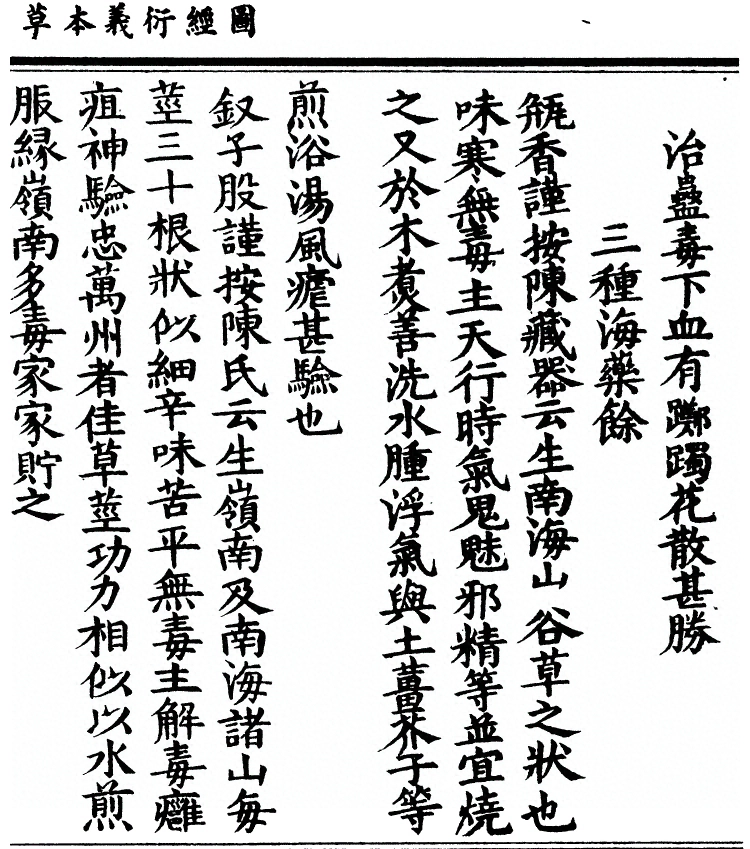 圖經衍義本草
治蠱毒下血有躑躅花散甚勝
三種海藥餘
瓶香謹按陳藏器云生南海山谷草之狀也
味寒無毒主天行時氣鬼魅邪精等並宜燒
之又於木煑善洗水腫浮氣與土薑芥子等
煎浴湯風瘧甚驗也
釵子股謹按陳氏云生嶺南及南海諸山每
莖三十根狀似細辛味苦平無毒主解毒癰
疽神驗忠萬州者佳草莖功力相似以水煎
服緣嶺南多毒家家貯之